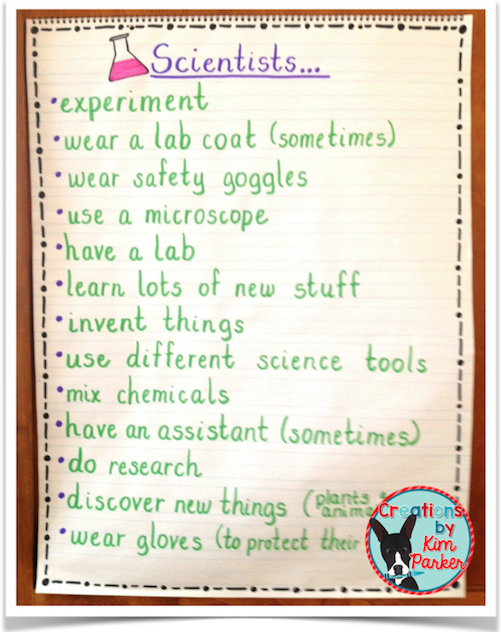 Scientists...
•experiment
•wear a lab coat (sometimes)
•wear safety goggles
•use a microscope
•have a lab
•learn lots of new stuff
•invent things
•use different science tools
•mix chemicals
•have an assistant (sometimes)
•do research
•discover new things (plants
•wear gloves (to protect their
Creations
by
Kim
Parker